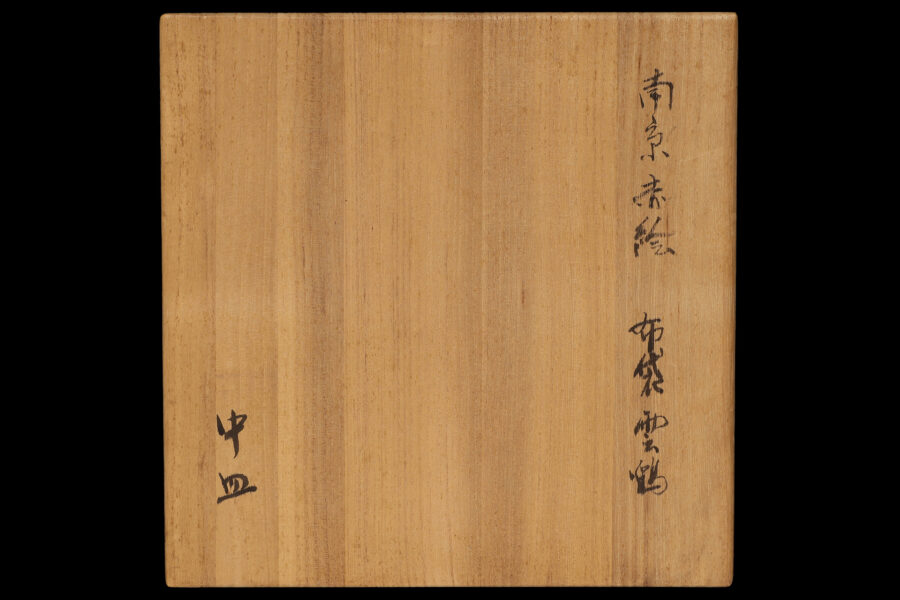 南京赤絵　布袋雲鶴
中皿